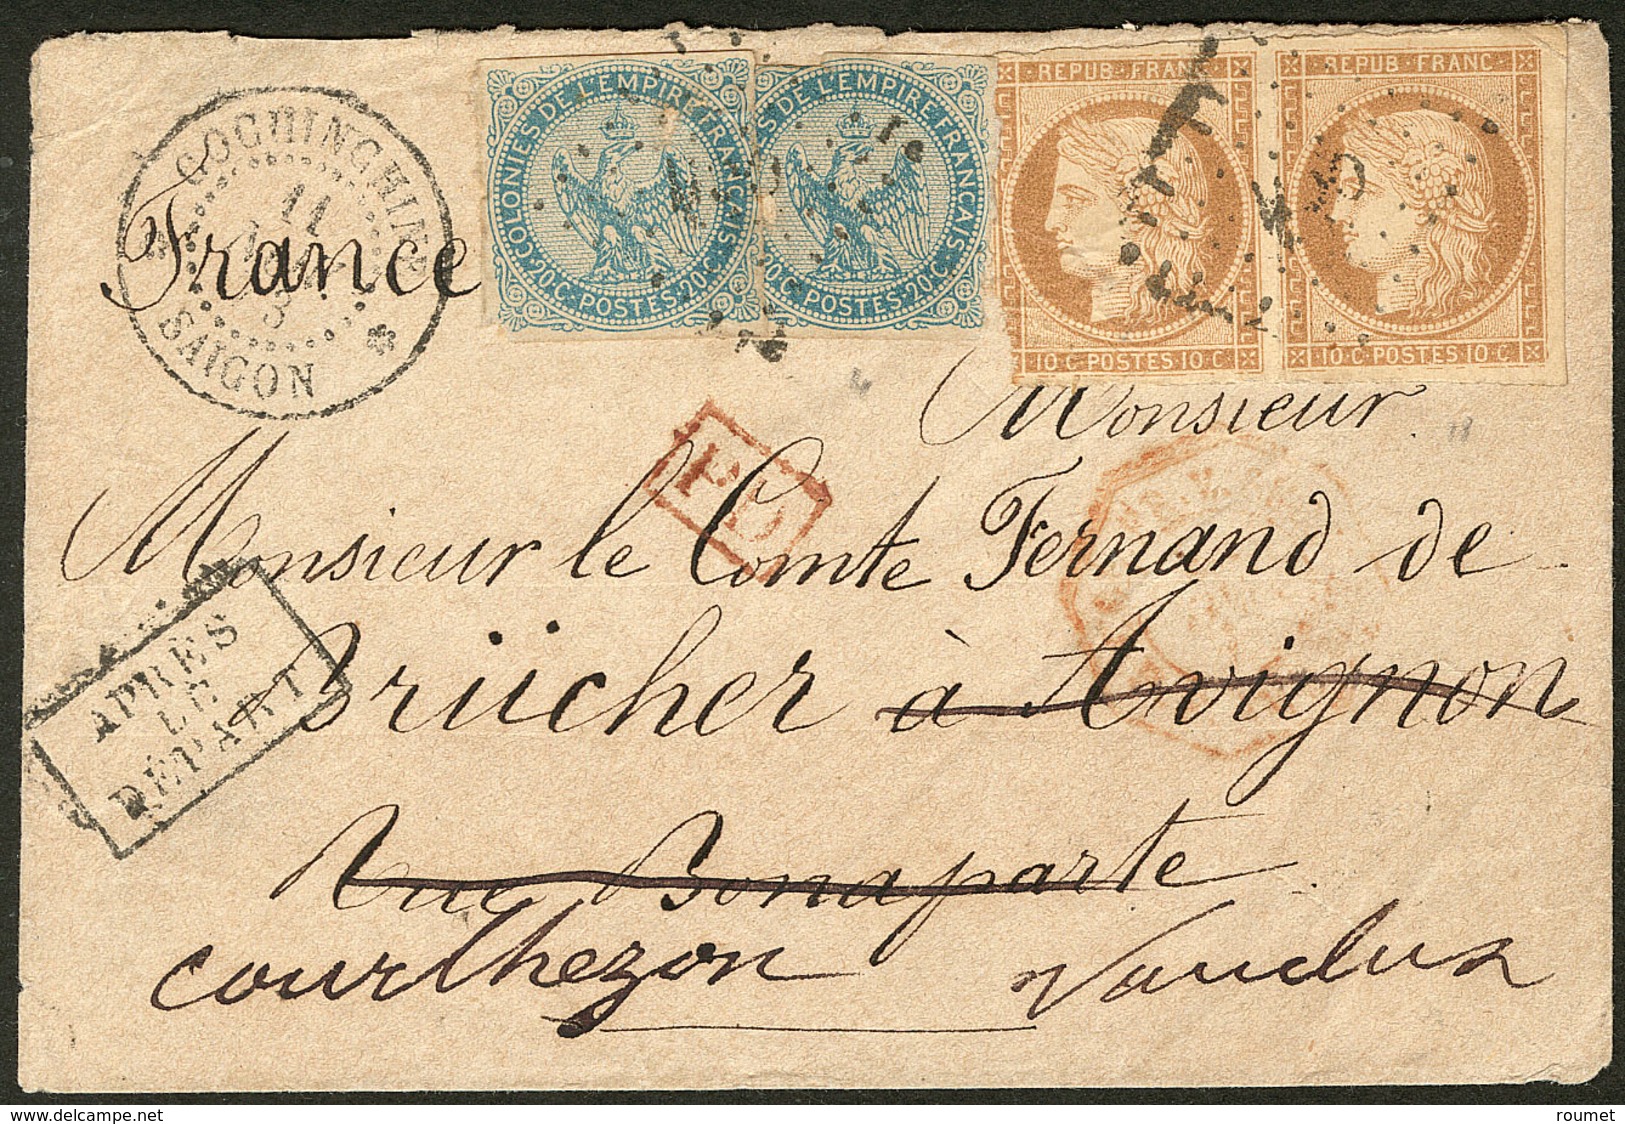 COCHINCHINE
11
SAIGON
France
COLONIES DE L'EMPIRE FRANÇAIS
20 C. POSTES. 20 C.
S DE L'EMPIRE FRANÇAIS
20 C. POSTES. 20 C.
REPUB. FRANC.
10 C. POSTES 10 C.
REPUB. FRANC.
10 C. POSTES 10 C.
PD
Monsieur
Monsieur le Comte Fernand de
Brücher à Avignon
APRÈS
LE
DÉPART
Rue Bonaparte
Courthezon Vaucluse
© roumet